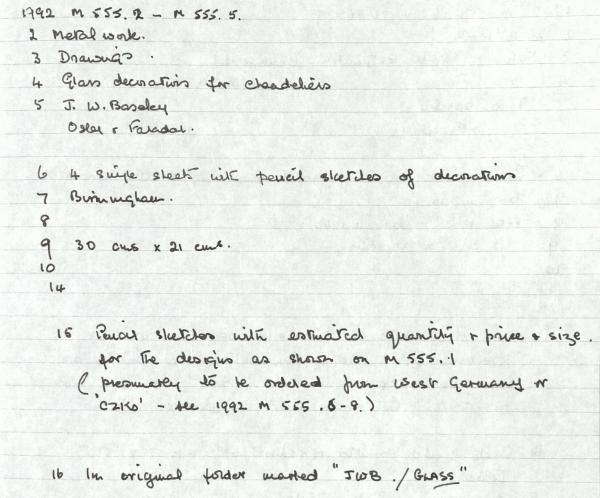 1792 M 555.2 - M 555.5.
2 Metal work.
3 Drawings.
4 Glass decorations for chandeliers
5 J. W. Baseley
Osler & Faraday.
6 4 single sheets with pencil sketches of decorations
7 Birmingham.
8
9 30 cms x 21 cms.
10
14
15 Pencil sketches with estimated quantity & price & size.
for the designs as shown on M 555.1
(presumably to be ordered from West Germany or
'CZKO' - see 1992 M 555.6-9.)
16 In original folder marked "JWB./GLASS"